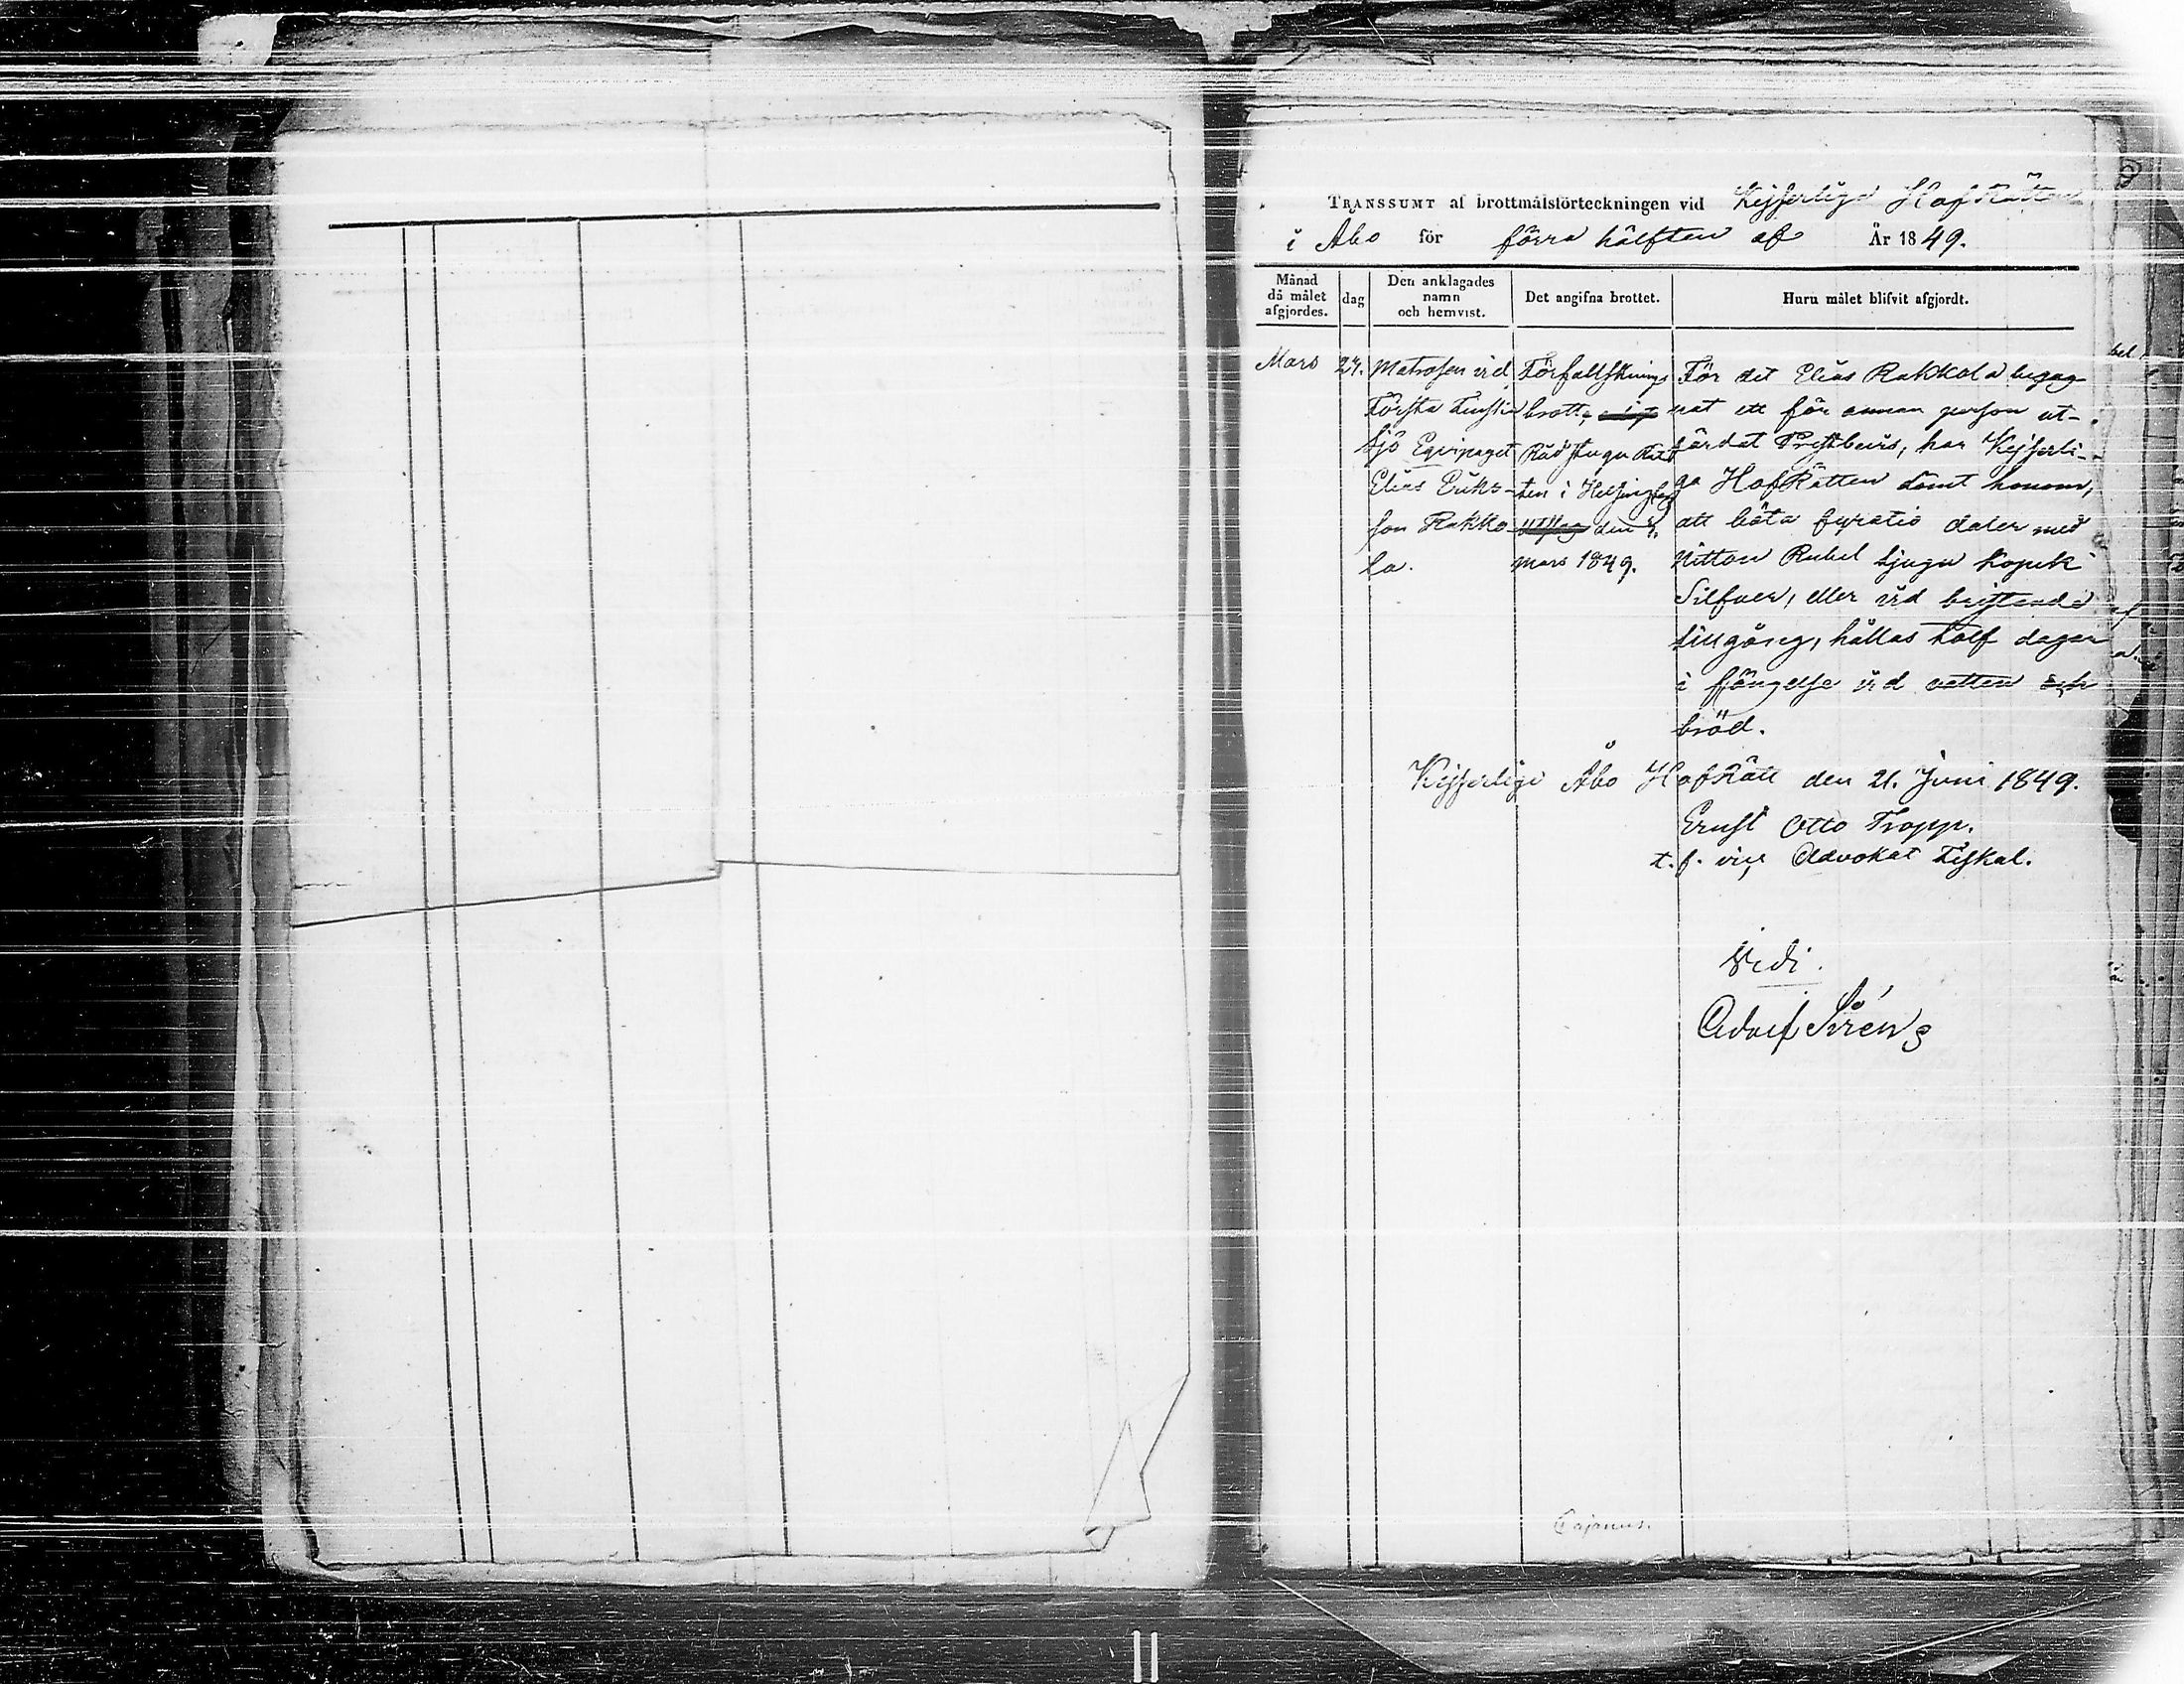 TRANSSUMT af brottmålsförteckningen vid Kejserliga HofRätten
i Åbo för förra hälften af År 1849.
Månad då målet afgjordes. dag Den anklagades namn och hemvist. Det angifna brottet. Huru målet blifvit afgjordt.
Mars 24. Matrosen vid Förfallsknings För det Elias Rakkola begag-
Första Finska brott, nat ett för annan person ut-
Sjö Eqvipaget RådstuguRät färdat Prestbevis, har Kejserli-
Elias Eriks- ten i Helsingfors ga HofRätten dömt honom,
son Rakko- den att böta fyratio daler med
la. Mars 1849. Nitton Rubel tjugu kopek
Silfver, eller vid bristande
tillgång, hållas tolf dagar
i fängelse vid vatten och
bröd.
Kejserliga Åbo HofRätt den 21. Juni 1849.
Ernst Otto Tropp.
t. f. vice Advokat Fiskal.
Vidi.
Adolf Sirén
Cajanus.